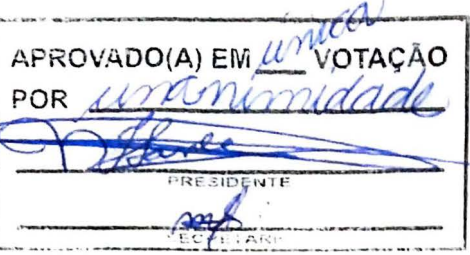 APROVADO(A) EM única VOTAÇÃO
POR unanimidade
PRESIDENTE
SECRETARI